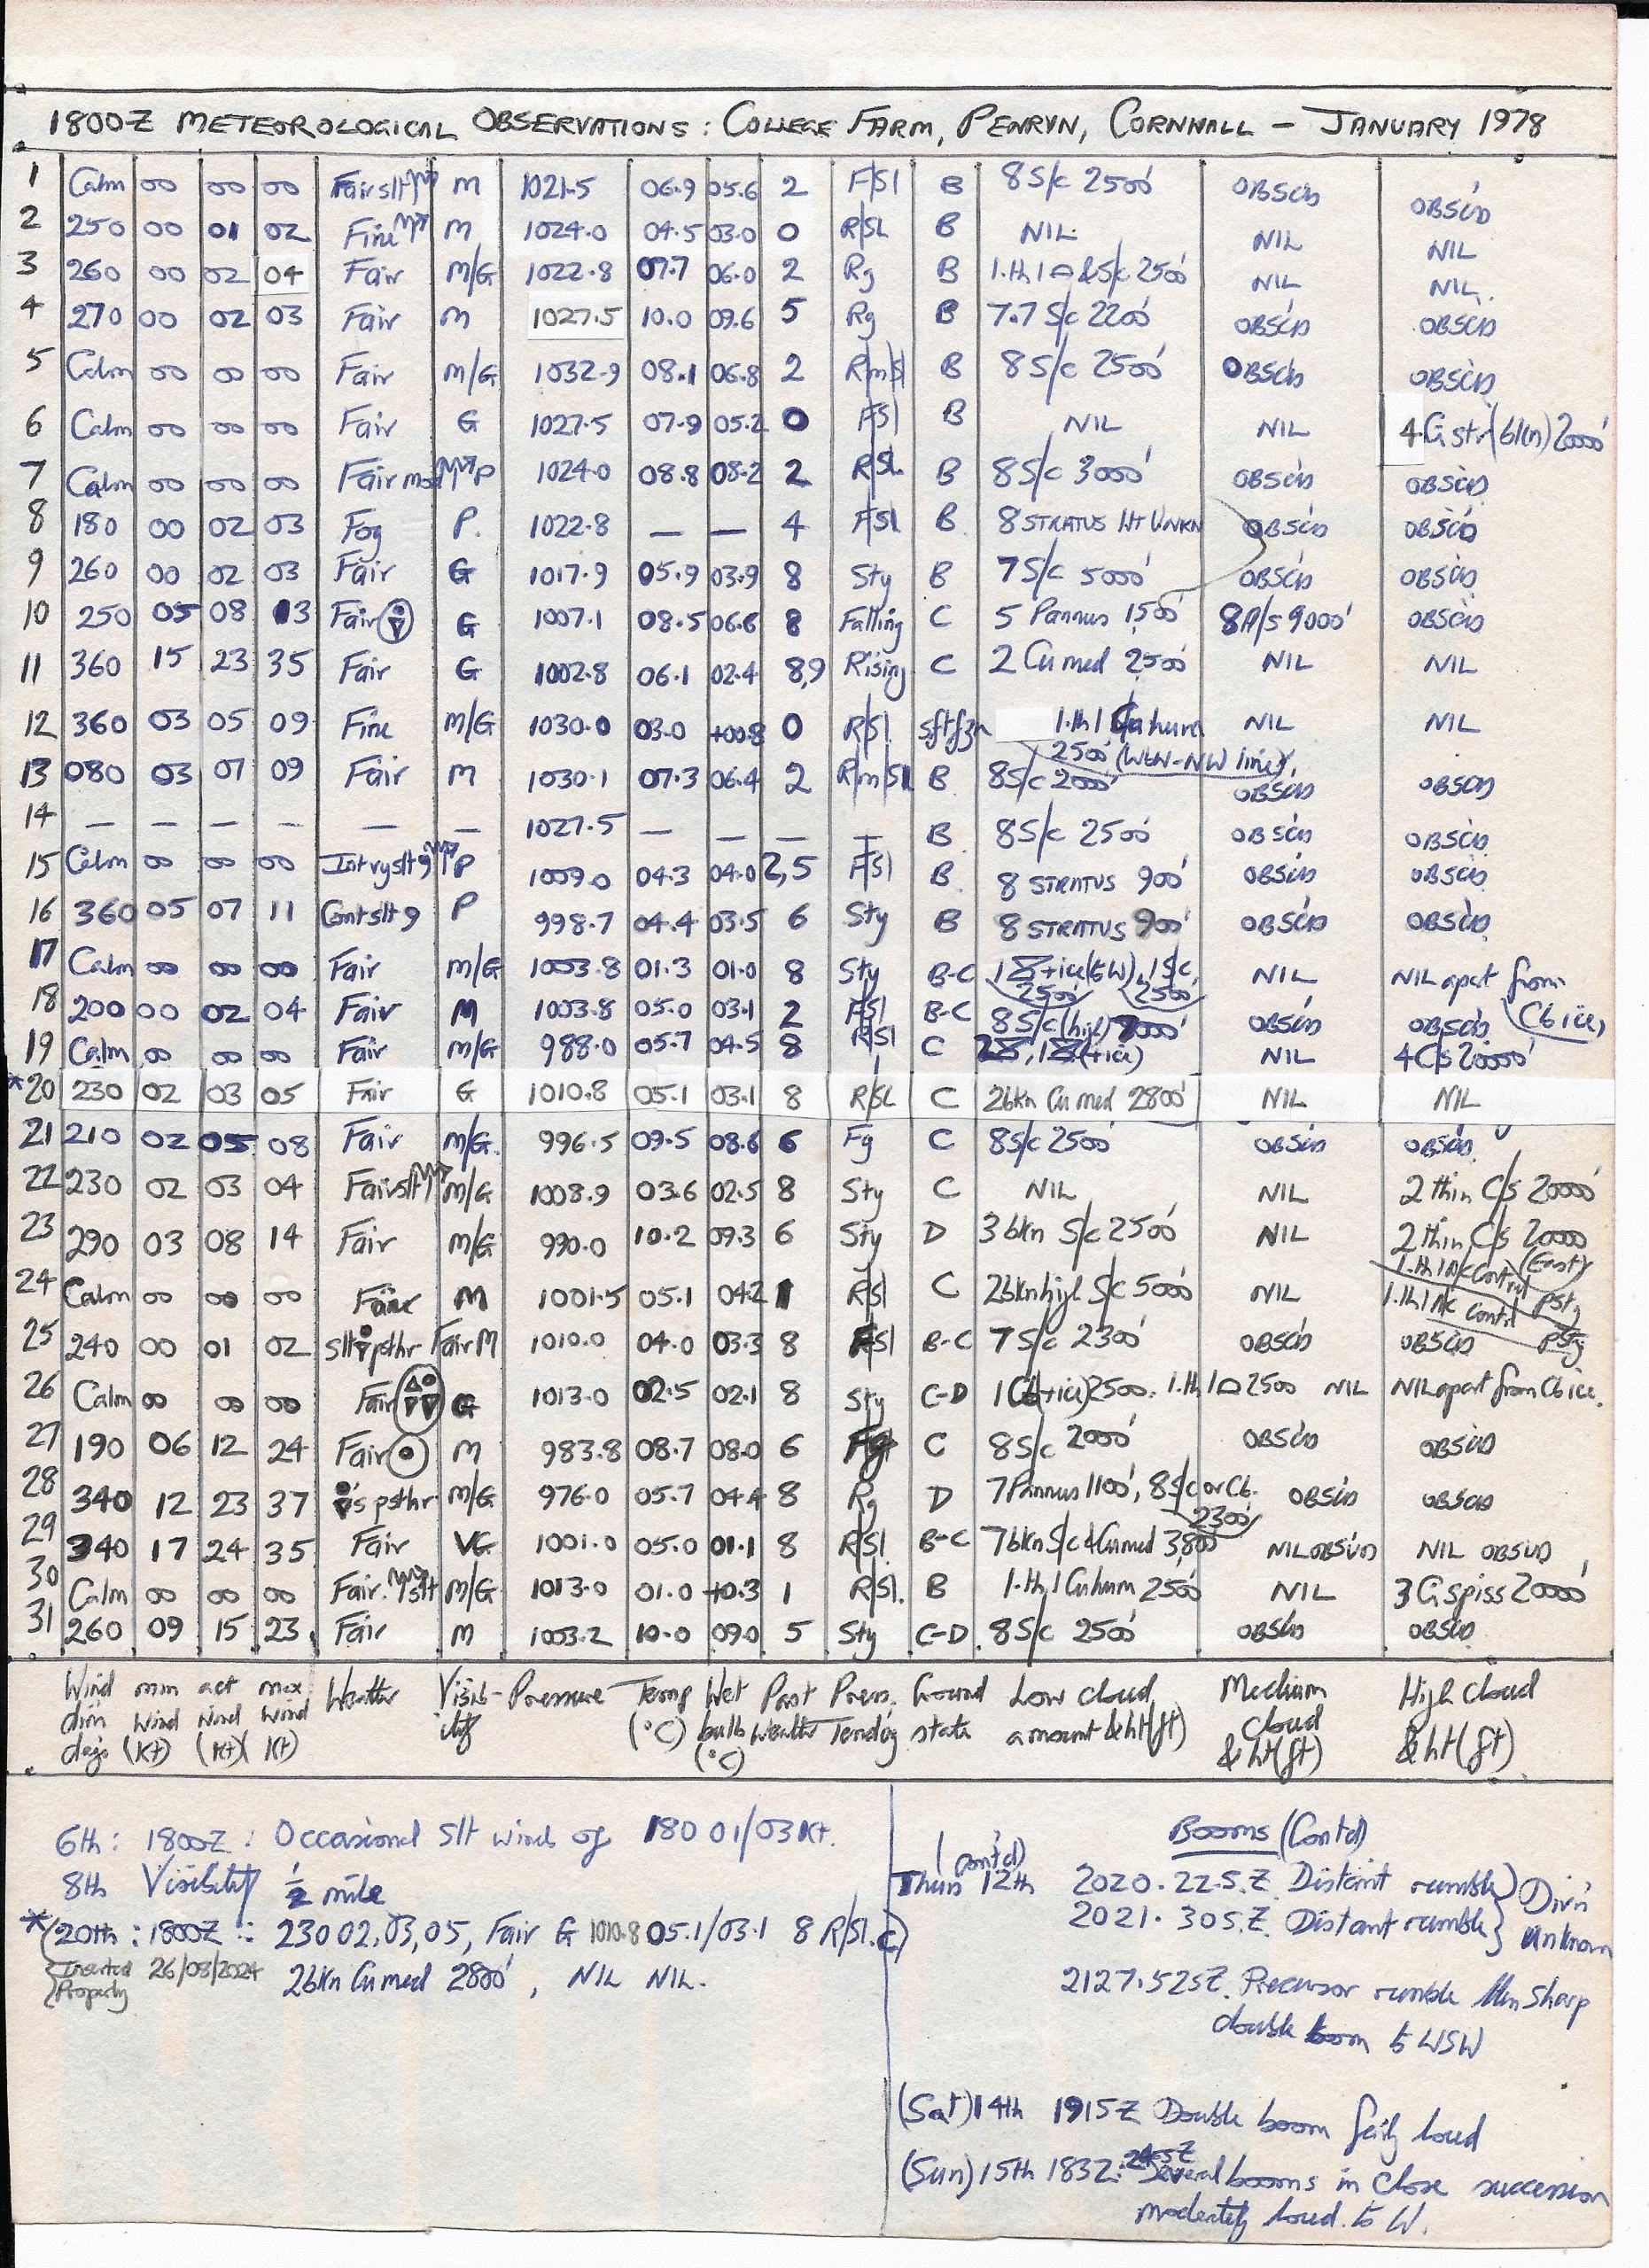 1800Z METEOROLOGICAL OBSERVATIONS: COLLEGE FARM, PENRYN, CORNWALL - JANUARY 1978
1 Calm 00 00 00 Fair slt M 1021.5 06.9 05.6 2 F/Sl B 8 S/c 2500' OBSC'D OBSC'D
2 250 00 01 02 Fine M 1024.0 04.5 03.0 0 R/SL B NIL NIL NIL
3 260 00 02 04 Fair M/G 1022.8 07.7 06.0 2 Rg B 1.th 1 & S/c 2500' NIL NIL.
4 270 00 02 03 Fair M 1027.5 10.0 09.6 5 Rg B 7.7 S/c 2200' OBSC'D OBSC'D
5 Calm 00 00 00 Fair M/G 1032.9 08.1 06.8 2 Rm/Sl B 8 S/c 2500' OBSC'D OBSC'D
6 Calm 00 00 00 Fair G 1027.5 07.9 05.2 0 F/Sl B NIL NIL 4 Ci str (bkn) 20000'
7 Calm 00 00 00 Fair mod P 1024.0 08.8 08.2 2 R/SL. B 8 S/c 3000' OBSC'D OBSC'D
8 180 00 02 03 Fog P. 1022.8 — — 4 F/Sl B 8 STRATUS Ht UNKN OBSC'D OBSC'D
9 260 00 02 03 Fair G 1017.9 05.9 03.9 8 Sty B 7 S/c 5000' OBSC'D OBSC'D
10 250 05 08 13 Fair G 1007.1 08.5 06.6 8 Falling C 5 Pannus 1500' 8 A/s 9000' OBSC'D
11 360 15 23 35 Fair G 1002.8 06.1 02.4 8,9 Rising C 2 Cu med 2500' NIL NIL
12 360 03 05 09 Fine M/G 1030.0 03.0 +00.8 0 R/Sl. sftfzn 1.th 1 Cu hum NIL NIL
2500' (WtW-NW line)
13 080 03 07 09 Fair M 1030.1 07.3 06.4 2 Rm/Sl B 8 S/c 2000' OBSC'D OBSC'D
14 — — — — — — 1027.5 — — — — B 8 S/c 2500' OBSC'D OBSC'D
15 Calm 00 00 00 Intryslt 9 P 1009.0 04.3 04.0 2,5 F/Sl B 8 STRATUS 900' OBSC'D OBSC'D
16 360 05 07 11 Contslt 9 P 998.7 04.4 03.5 6 Sty B 8 STRATUS 900' OBSC'D OBSC'D
17 Calm 00 00 00 Fair M/G 1003.8 01.3 01.0 8 Sty B-C 1 +ice (to W), 1 S/c, NIL NIL apart from
2500' 2500' Cb ice,
18 200 00 02 04 Fair M 1003.8 05.0 03.1 2 F/Sl B-C 8 S/c (high) OBSC'D OBSC'D
19 Calm 00 00 00 Fair M/G 988.0 05.7 04.5 8 R/Sl C (+ice) NIL 4 C/s 20000'
*20 230 02 03 05 Fair G 1010.8 05.1 03.1 8 R/SL C 2 bkn Cu med 2800' NIL NIL
21 210 02 05 08 Fair M/G. 996.5 09.5 08.6 6 Fg C 8 S/c 2500' OBSC'D OBSC'D
22 230 02 03 04 Fair slt M/G 1008.9 03.6 02.5 8 Sty C NIL NIL 2 thin C/s 20000'
23 290 03 08 14 Fair M/G 990.0 10.2 09.3 6 Sty D 3 bkn S/c 2500' NIL 2 thin C/s 20000
1.th 1 A/c Contrl (East)
24 Calm 00 00 00 M 1001.5 05.1 04.2 1 R/Sl C 2 bkn high S/c 5000' NIL 1.th 1 A/c Contrl psty
25 240 00 01 02 slt psthr Fair M 1010.0 04.0 03.3 8 F/Sl B-C 7 S/c 2300' OBSC'D OBSC'D
26 Calm 00 00 00 Fair G 1013.0 02.5 02.1 8 Sty C-D 1 Cb (+ice) 2500', 1.th 1 2500 NIL NIL apart from Cb ice.
27 190 06 12 24 Fair M 983.8 08.7 08.0 6 Fg C 8 S/c 2000' OBSC'D OBSC'D
28 340 12 23 37 's psthr M/G 976.0 05.7 04.4 8 Rg D 7 Pannus 1100', 8 S/c or Cb. OBSC'D OBSC'D
2300'
29 340 17 24 35 Fair VG 1001.0 05.0 01.1 8 R/Sl. B-C 7 bkn S/c & Cu med 3,800' NIL OBSV'D NIL OBSVD
30 Calm 00 00 00 Fair. slt M/G 1013.0 01.0 +0.3 1 R/Sl. B 1.th 1 Cu hum 2500' NIL 3 Ci spiss 20000'
31 260 09 15 23 Fair M 1003.2 10.0 09.0 5 Sty C-D 8 S/c 2500' OBSC'D OBSC'D
Wind min act max Weather Visib- Pressure Temp Wet Past Press. Ground Low cloud Medium High cloud
dirn Wind Wind Wind ility (°C) bulb Weather Tendcy state amount & ht (ft) cloud & ht (ft)
degs (Kt) (Kt) (Kt) (°C) & ht (ft)
6th: 1800Z: Occasional slt wind of 180 01/03 Kt.
8th Visibility ½ mile
*(20th: 1800Z: 230 02,03,05, Fair G 1010.8 05.1/03.1 8 R/Sl. C)
Inserted 26/03/2024 2 bkn Cu med 2800', NIL NIL.
Properly
Booms (Contd)
(contd)
Thurs 12th 2020.22.S.Z. Distant rumble } Dirn
2021.30S.Z. Distant rumble } unknown
2127.52SZ. Precursor rumble then sharp
double boom to WSW
(Sat) 14th 1915Z Double boom fairly loud
(Sun) 15th 1832: 24SZ Several booms in close succession
moderately loud to W.